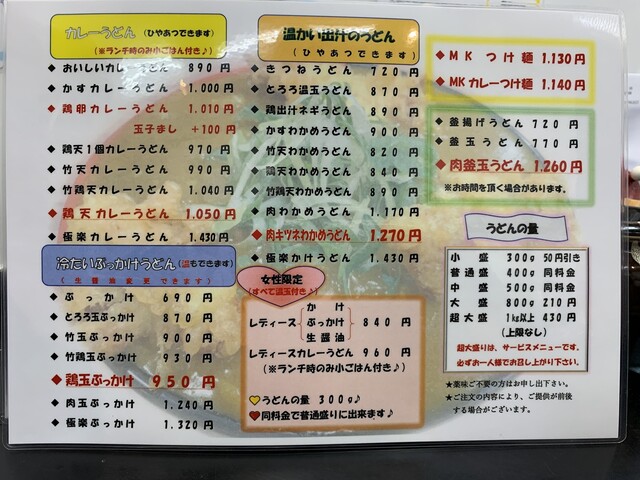 カレーうどん (ひやあつできます)
(※ランチ時のみ小ごはん付き♪)
◆ おいしいカレーうどん 890 円
◆ かすカレーうどん 1.000 円
◆ 鶏卵カレーうどん 1.010 円
玉子まし +100 円
◆ 鶏天1個カレーうどん 970 円
◆ 竹天カレーうどん 990 円
◆ 竹鶏天カレーうどん 1.040 円
◆ 鶏天カレーうどん 1.050 円
◆ 極楽カレーうどん 1.430 円
冷たいぶっかけうどん (温もできます)
(生醤油変更できます)
◆ ぶっかけ 690 円
◆ とろろ玉ぶっかけ 870 円
◆ 竹玉ぶっかけ 900 円
◆ 竹鶏玉ぶっかけ 930 円
◆ 鶏玉ぶっかけ 950 円
◆ 肉玉ぶっかけ 1.240 円
◆ 極楽ぶっかけ 1.320 円
温かい出汁のうどん
(ひやあつできます)
◆ きつねうどん 720 円
◆ とろろ温玉うどん 870 円
◆ 鶏出汁ネギうどん 890 円
◆ かすわかめうどん 900 円
◆ 竹天わかめうどん 820 円
◆ 鶏天わかめうどん 840 円
◆ 竹鶏天わかめうどん 890 円
◆ 肉わかめうどん 1.170 円
◆ 肉キツネわかめうどん 1.270 円
◆ 極楽かけうどん 1.430 円
女性限定
(すべて温玉付き♪)
かけ
レディース ぶっかけ 840 円
生醤油
レディースカレーうどん 960 円
(※ランチ時のみ小ごはん付き♪)
うどんの量 300g♪
同料金で普通盛りに出来ます♪
◆ MK つけ麺 1.130円
◆ MKカレーつけ麺 1.140円
◆ 釜揚げうどん 720 円
◆ 釜玉うどん 770 円
◆ 肉釜玉うどん 1.260円
※お時間を頂く場合があります。
うどんの量
小盛 300g 50円引き
普通盛 400g 同料金
中盛 500g 同料金
大盛 800g 210円
超大盛 1kg以上 430円
(上限なし)
超大盛りは、サービスメニューです。
必ずお一人様でお召し上がり下さい。
★薬味ご不要の方はお申し出下さい。
★ご注文の内容により、ご提供が前後
する場合がございます。